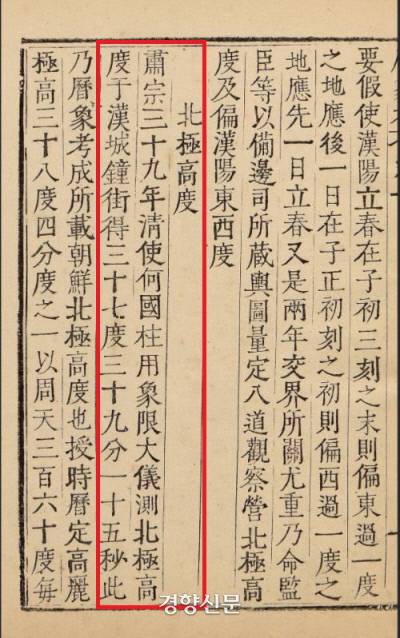 要假使漢陽立春在子初三刻之末則偏東過一度
之地應後一日在子正初刻之初則偏西過一度之
地應先一日立春又是兩年交界所關尤重乃命監
臣等以備邊司所蔵輿圖量定八道觀察營北極高
度及偏漢陽東西度
北極高度
肅宗三十九年清使何國柱用象限大儀測北極高
度于漢城鐘街得三十七度三十九分一十五秒此
乃曆象考成所載朝鮮北極高度也授時曆定高麗
極高三十八度四分度之一以周天三百六十度每
경향신문